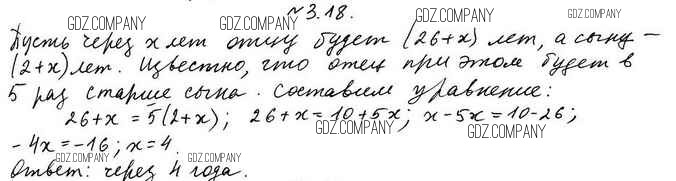 №3.18.
Пусть через x лет отцу будет (26+x) лет, а сыну –
(2+x) лет. Известно, что отец при этом будет в
5 раз старше сына. Составим уравнение:
26+x=5(2+x); 26+x=10+5x; x-5x=10-26;
-4x=-16; x=4.
Ответ: через 4 года.
GDZ.COMPANY
GDZ.COMPANY
GDZ.COMPANY
GDZ.COMPANY
GDZ.COMPANY
GDZ.COMPANY
GDZ.COMPANY
GDZ.COMPANY
GDZ.COMPANY
GDZ.COMPANY